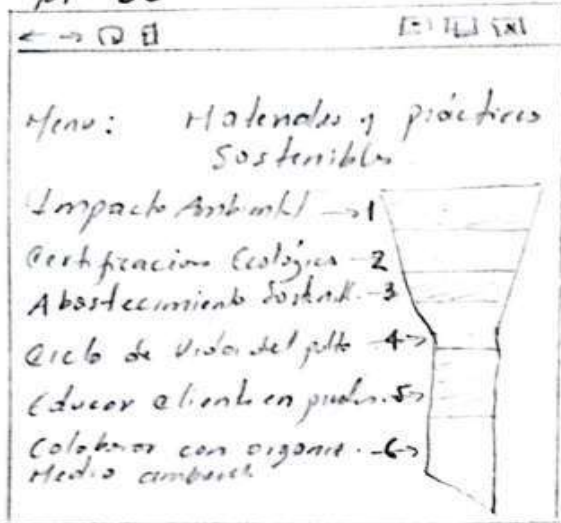 Menu: Materiales y prácticas
Sostenibles
Impacto Ambiental → 1
Certificacion Ecológica - 2
Abastecimiento Sostenib. - 3
Ciclo de Vida del pdto - 4 →
Educar cliente en 5 →
Colaborar con organiz. - 6 →
Medio ambient